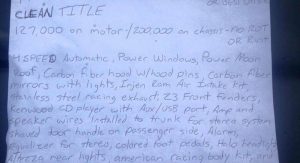 OR BEST OFFER
CLEAN TITLE
127,000 on motor-/200,000 on chassis-no ROT
OR RUST
4 SPEED Automatic, Power Windows, Power Moon
Roof, Carbon fiber hood w/hood pins, Carbon Fiber
mirrors with lights, Injen Ram Air Intake kit,
stainless steel racing exhaust, Z3 Front Fenders,
Kenwood CD player with Aux/USB port, Amp and
speaker wires installed to trunk for stereo system
shaved door handle on passenger side, Alarm,
Equalizer for stereo, colored foot pedals, Halo headlights
Altezza rear lights, american racing body kit, and